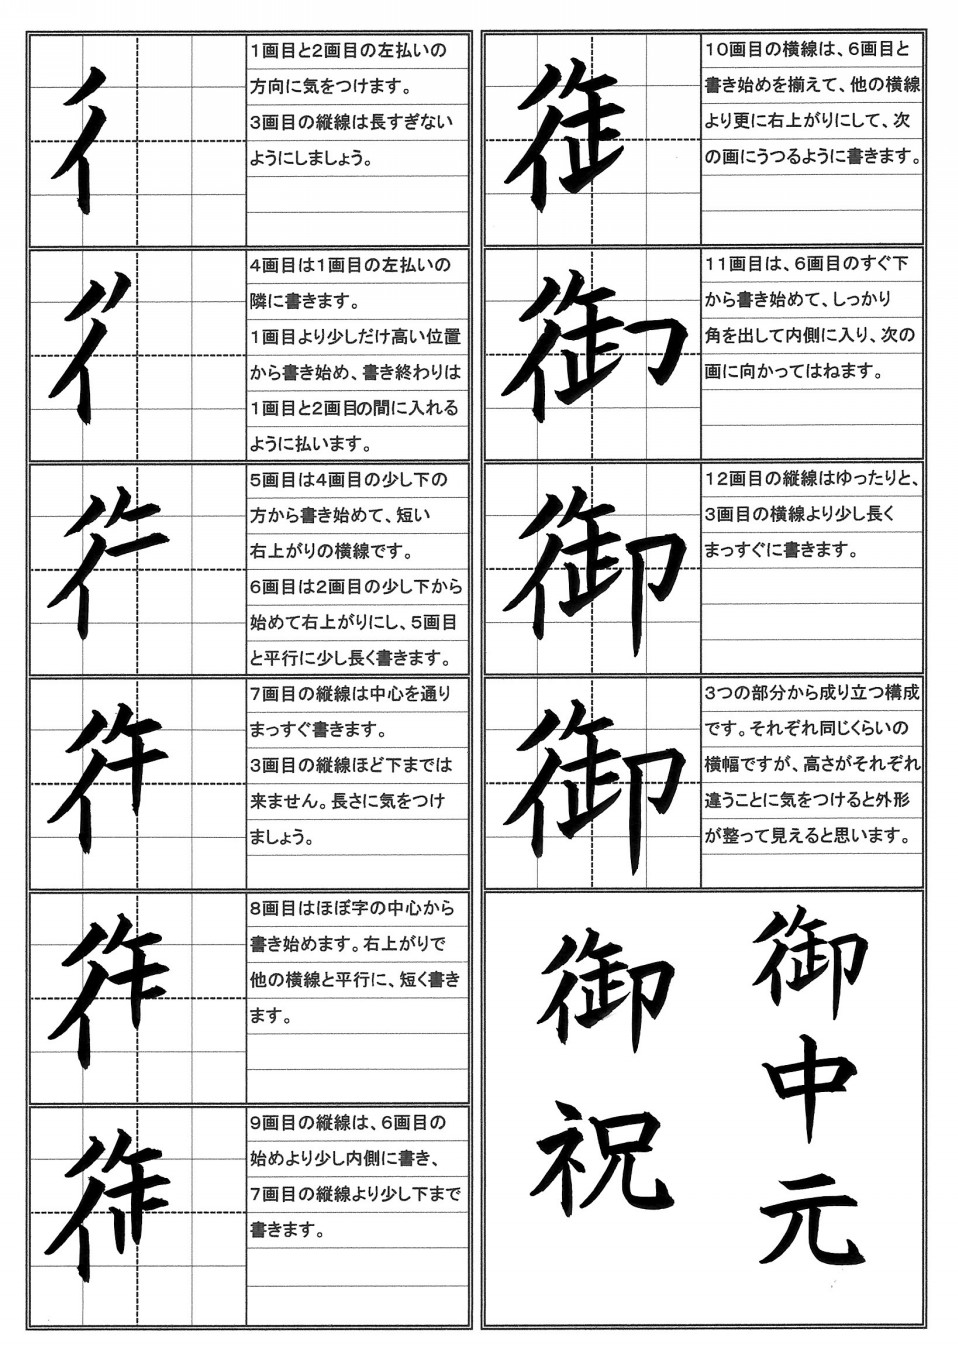 1画目と2画目の左払いの
方向に気をつけます。
3画目の縦線は長すぎない
ようにしましょう。
4画目は1画目の左払いの
隣に書きます。
1画目より少しだけ高い位置
から書き始め、書き終わりは
1画目と2画目の間に入れる
ように払います。
5画目は4画目の少し下の
方から書き始めて、短い
右上がりの横線です。
6画目は2画目の少し下から
始めて右上がりにし、5画目
と平行に少し長く書きます。
7画目の縦線は中心を通り
まっすぐ書きます。
3画目の縦線ほど下までは
来ません。長さに気をつけ
ましょう。
8画目はほぼ字の中心から
書き始めます。右上がりで
他の横線と平行に、短く書き
ます。
9画目の縦線は、6画目の
始めより少し内側に書き、
7画目の縦線より少し下まで
書きます。
10画目の横線は、6画目と
書き始めを揃えて、他の横線
より更に右上がりにして、次
の画にうつるように書きます。
11画目は、6画目のすぐ下
から書き始めて、しっかり
角を出して内側に入り、次の
画に向かってはねます。
御
12画目の縦線はゆったりと、
3画目の横線より少し長く
まっすぐに書きます。
御
3つの部分から成り立つ構成
です。それぞれ同じくらいの
横幅ですが、高さがそれぞれ
違うことに気をつけると外形
が整って見えると思います。
御中元
御祝